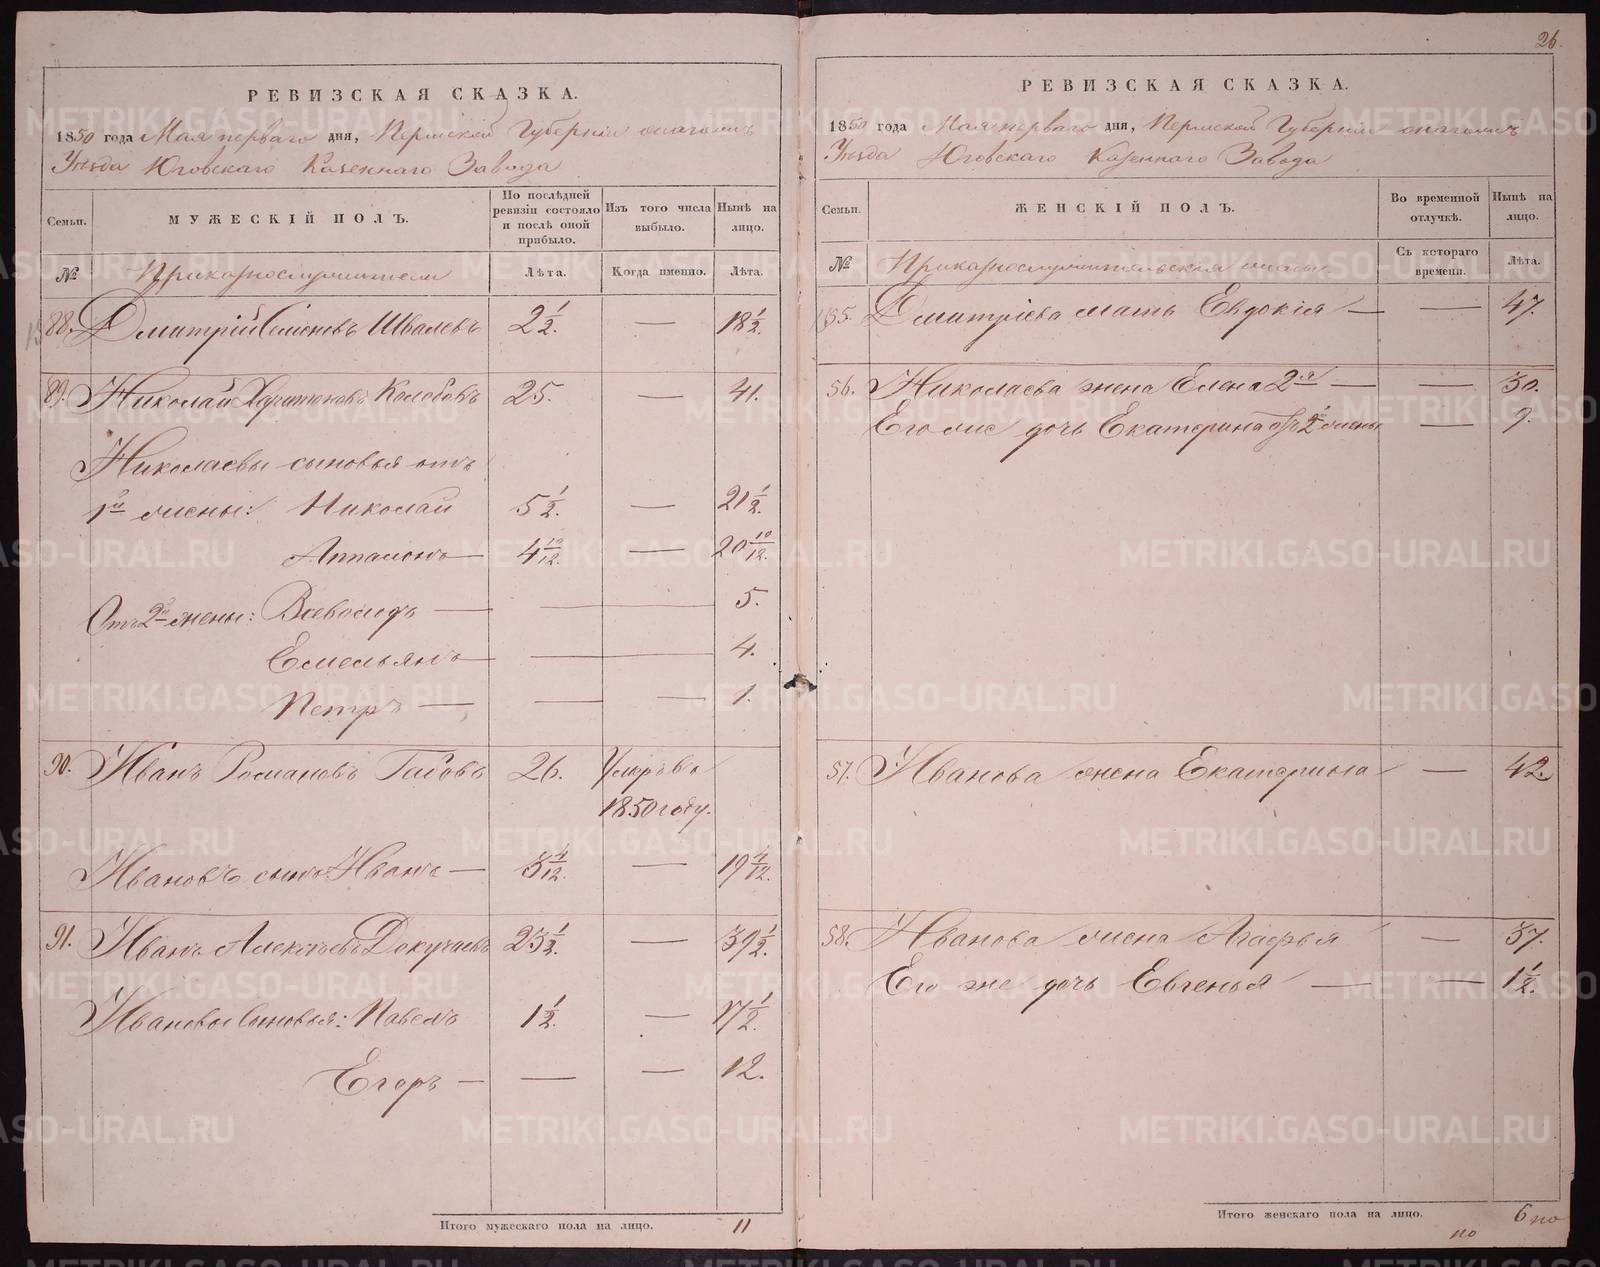 РЕВИЗСКАЯ СКАЗКА.
1850 года Мая перваго дня, Пермской Губерніи
Уѣзда Юговскаго Казеннаго Завода
Семьи.
МУЖЕСКІЙ ПОЛЪ.
По послѣдней ревизіи состояло и послѣ оной прибыло.
Изъ того числа выбыло.
Нынѣ на лицо.
№
Приказнослужители
Лѣта.
Когда именно.
Лѣта.
88. Дмитрій Семеновъ Швалевъ 2 1/2. — 18 1/2.
89. Николай Харитоновъ Колобовъ 25. — 41.
Николаевы сыновья отъ
1й жены: Николай 5 1/2. — 21 1/2.
4 10/12. — 20 10/12.
Отъ 2й жены: Всеволодъ — — 5.
Емельянъ — — 4.
Петръ — — — 1.
90. Иванъ Романовъ 26. Умеръ въ
1850 году.
Ивановъ сынъ Иванъ — 3 4/12. — 19 4/12.
91. Иванъ Алексѣевъ Докучаевъ 23 1/2. — 39 1/2.
Ивановы сыновья: Павелъ 1 1/2. — 17 1/2.
Егоръ — — — 12.
Итого мужескаго пола на лицо. 11
26.
РЕВИЗСКАЯ СКАЗКА.
1850 года Мая перваго дня, Пермской Губерніи
Уѣзда Юговскаго Казеннаго Завода
Семьи.
ЖЕНСКІЙ ПОЛЪ.
Во временной отлучкѣ.
Нынѣ на лицо.
№
Приказнослужительскія
Съ котораго времени.
Лѣта.
55. Дмитріева мать Евдокія — — 47.
56. Николаева жена Елена 2я — — 30.
Его же дочь Екатерина отъ 2й жены — 9.
57. Иванова жена Екатерина — 42.
58. Иванова жена Агафья — 37.
Его же дочь Евгенья — — 1 1/2.
Итого женскаго пола на лицо. 6
METRIKI.GASO-URAL.RU